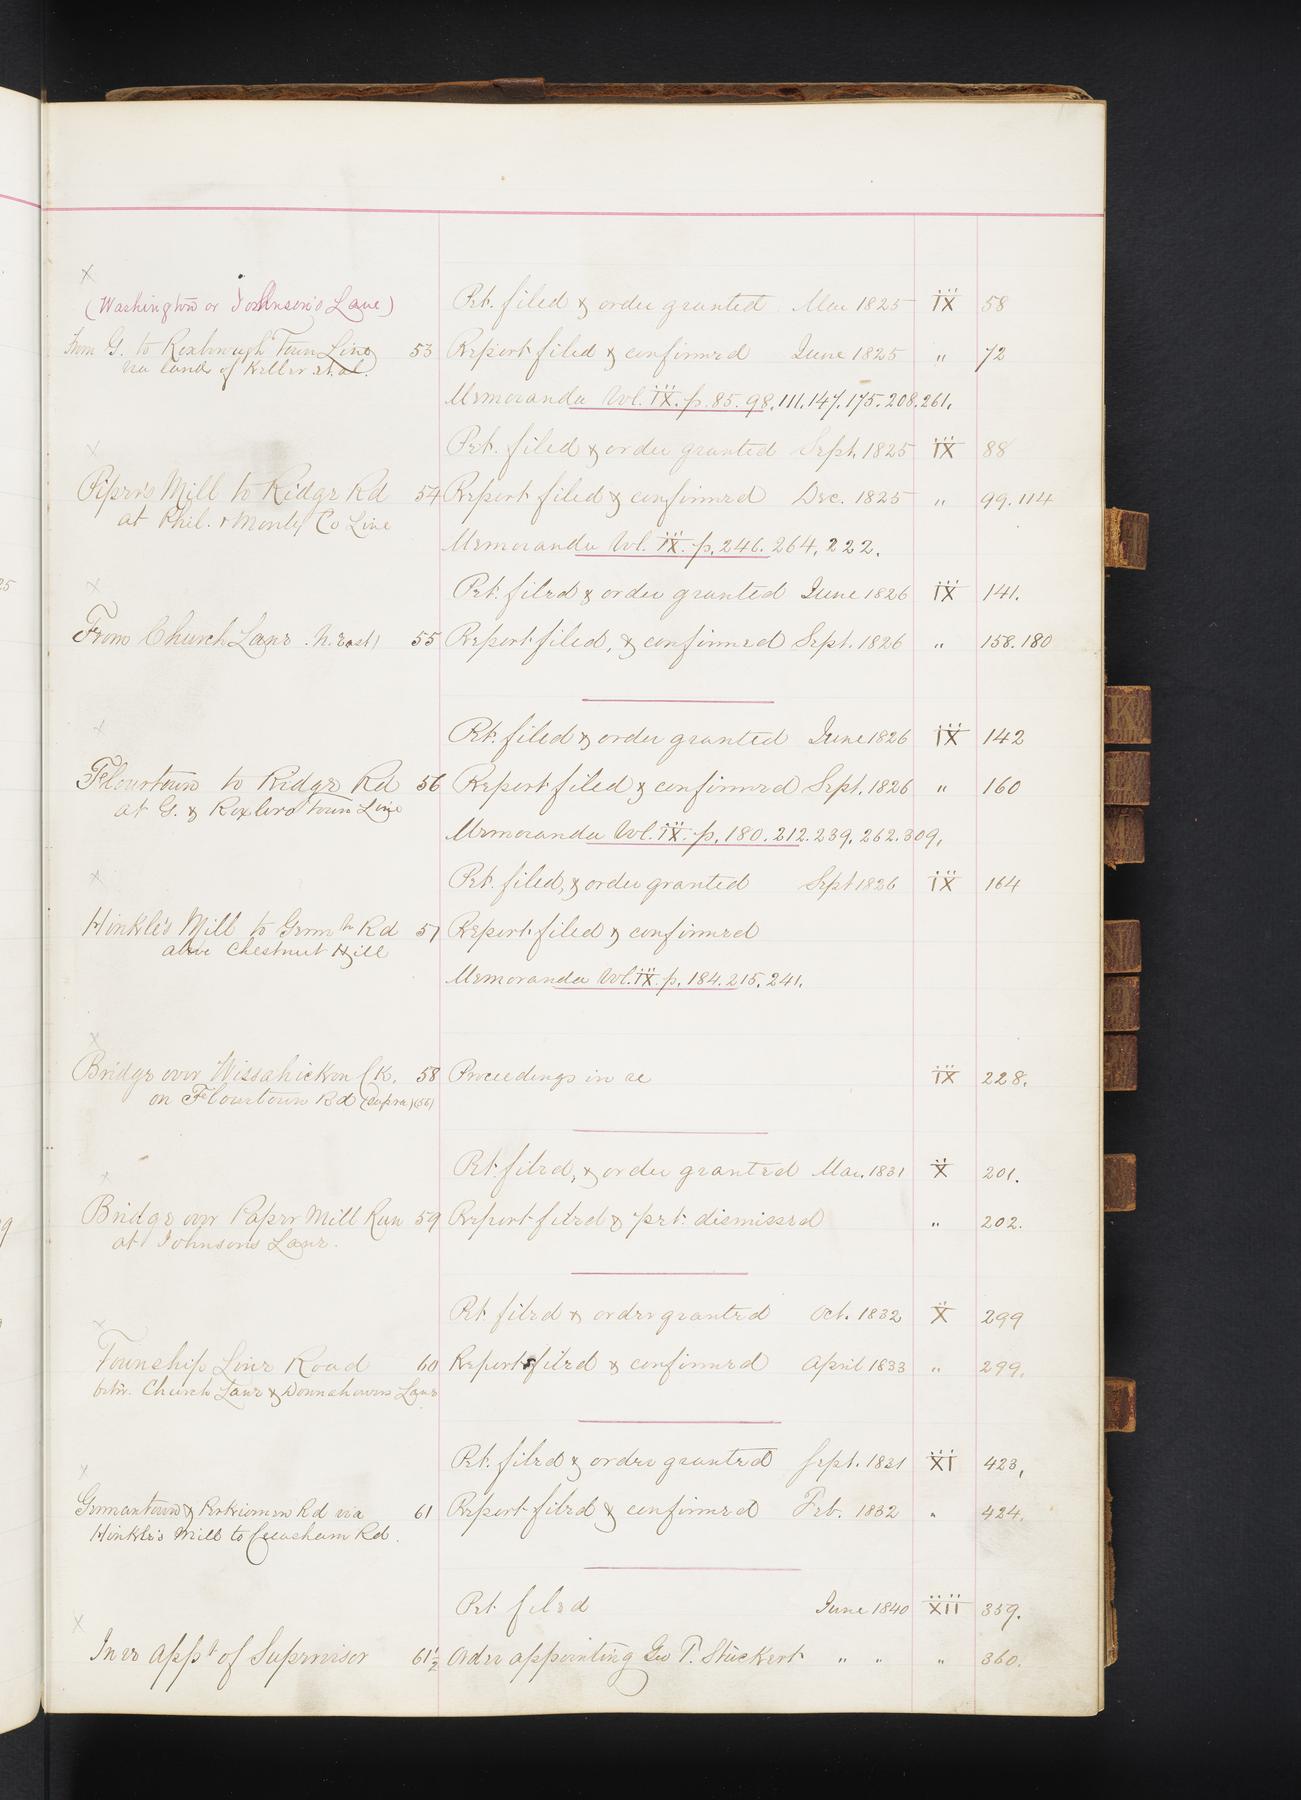 x
(Washington or Johnson's Lane) Pet. filed & order granted Mar 1825 IX 58
From G. to Roxborough Town Line 53 Report filed & confirmed June 1825 " 72
via land of Keller et. al.
Memoranda Vol. IX. p. 85. 98. 111. 147. 175. 208. 261.
x
Pet. filed & order granted Sept. 1825 IX 88
Piper's Mill to Ridge Rd 54 Report filed & confirmed Dec. 1825 " 99. 114
at Phil. & Montg Co Line
Memoranda Vol. IX. p. 246. 264. 222.
x
Pet. filed & order granted June 1826 IX 141.
From Church Lane. N. East) 55 Report filed, & confirmed Sept. 1826 " 158. 180
x
Pet. filed & order granted June 1826 IX 142
Flourtown to Ridge Rd 56 Report filed & confirmed Sept. 1826 " 160
at G. & Roxboro Town Line
Memoranda Vol. IX. p. 180. 212. 239. 262. 309.
x
Pet. filed, & order granted Sept 1826 IX 164
Hinkle's Mill to Germn Rd 57 Report filed & confirmed
above Chestnut Hill
Memoranda Vol. IX. p. 184. 215. 241.
x
Bridge over Wissahickon Ck. 58 Proceedings in re IX 228.
on Flourtown Rd (supra) (56)
x
Pet. filed, & order granted Mar. 1831 X 201.
Bridge over Paper Mill Run 59 Report filed & pet. dismissed " 202.
at Johnsons Lane.
x
Pet. filed & order granted Oct. 1832 X 299
Township Line Road 60 Report filed & confirmed April 1833 " 299.
betw. Church Lane & Donnahowers Lane
x
Pet. filed & order granted Sept. 1831 XI 423,
Germantown & Perkiomen Rd via 61 Report filed & confirmed Feb. 1832 " 424.
Hinkle's Mill to Creasham Rd.
x
Pet. filed June 1840 XII 359.
In re appt of Supervisor 61½ Order appointing Geo T. Stuckert " " " 360.
K
L
M
N
O